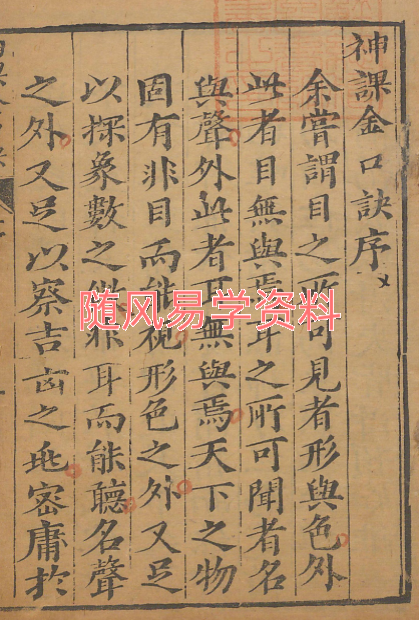 神課金口訣序
余嘗謂目之所可見者形與色外
此者目無與焉耳之所可聞者名
與聲外此者耳無與焉天下之物
固有非目而能視形色之外又足
以探象數之非耳而能聽名聲
之外又足以察吉凶之兆密庸於
随风易学资料